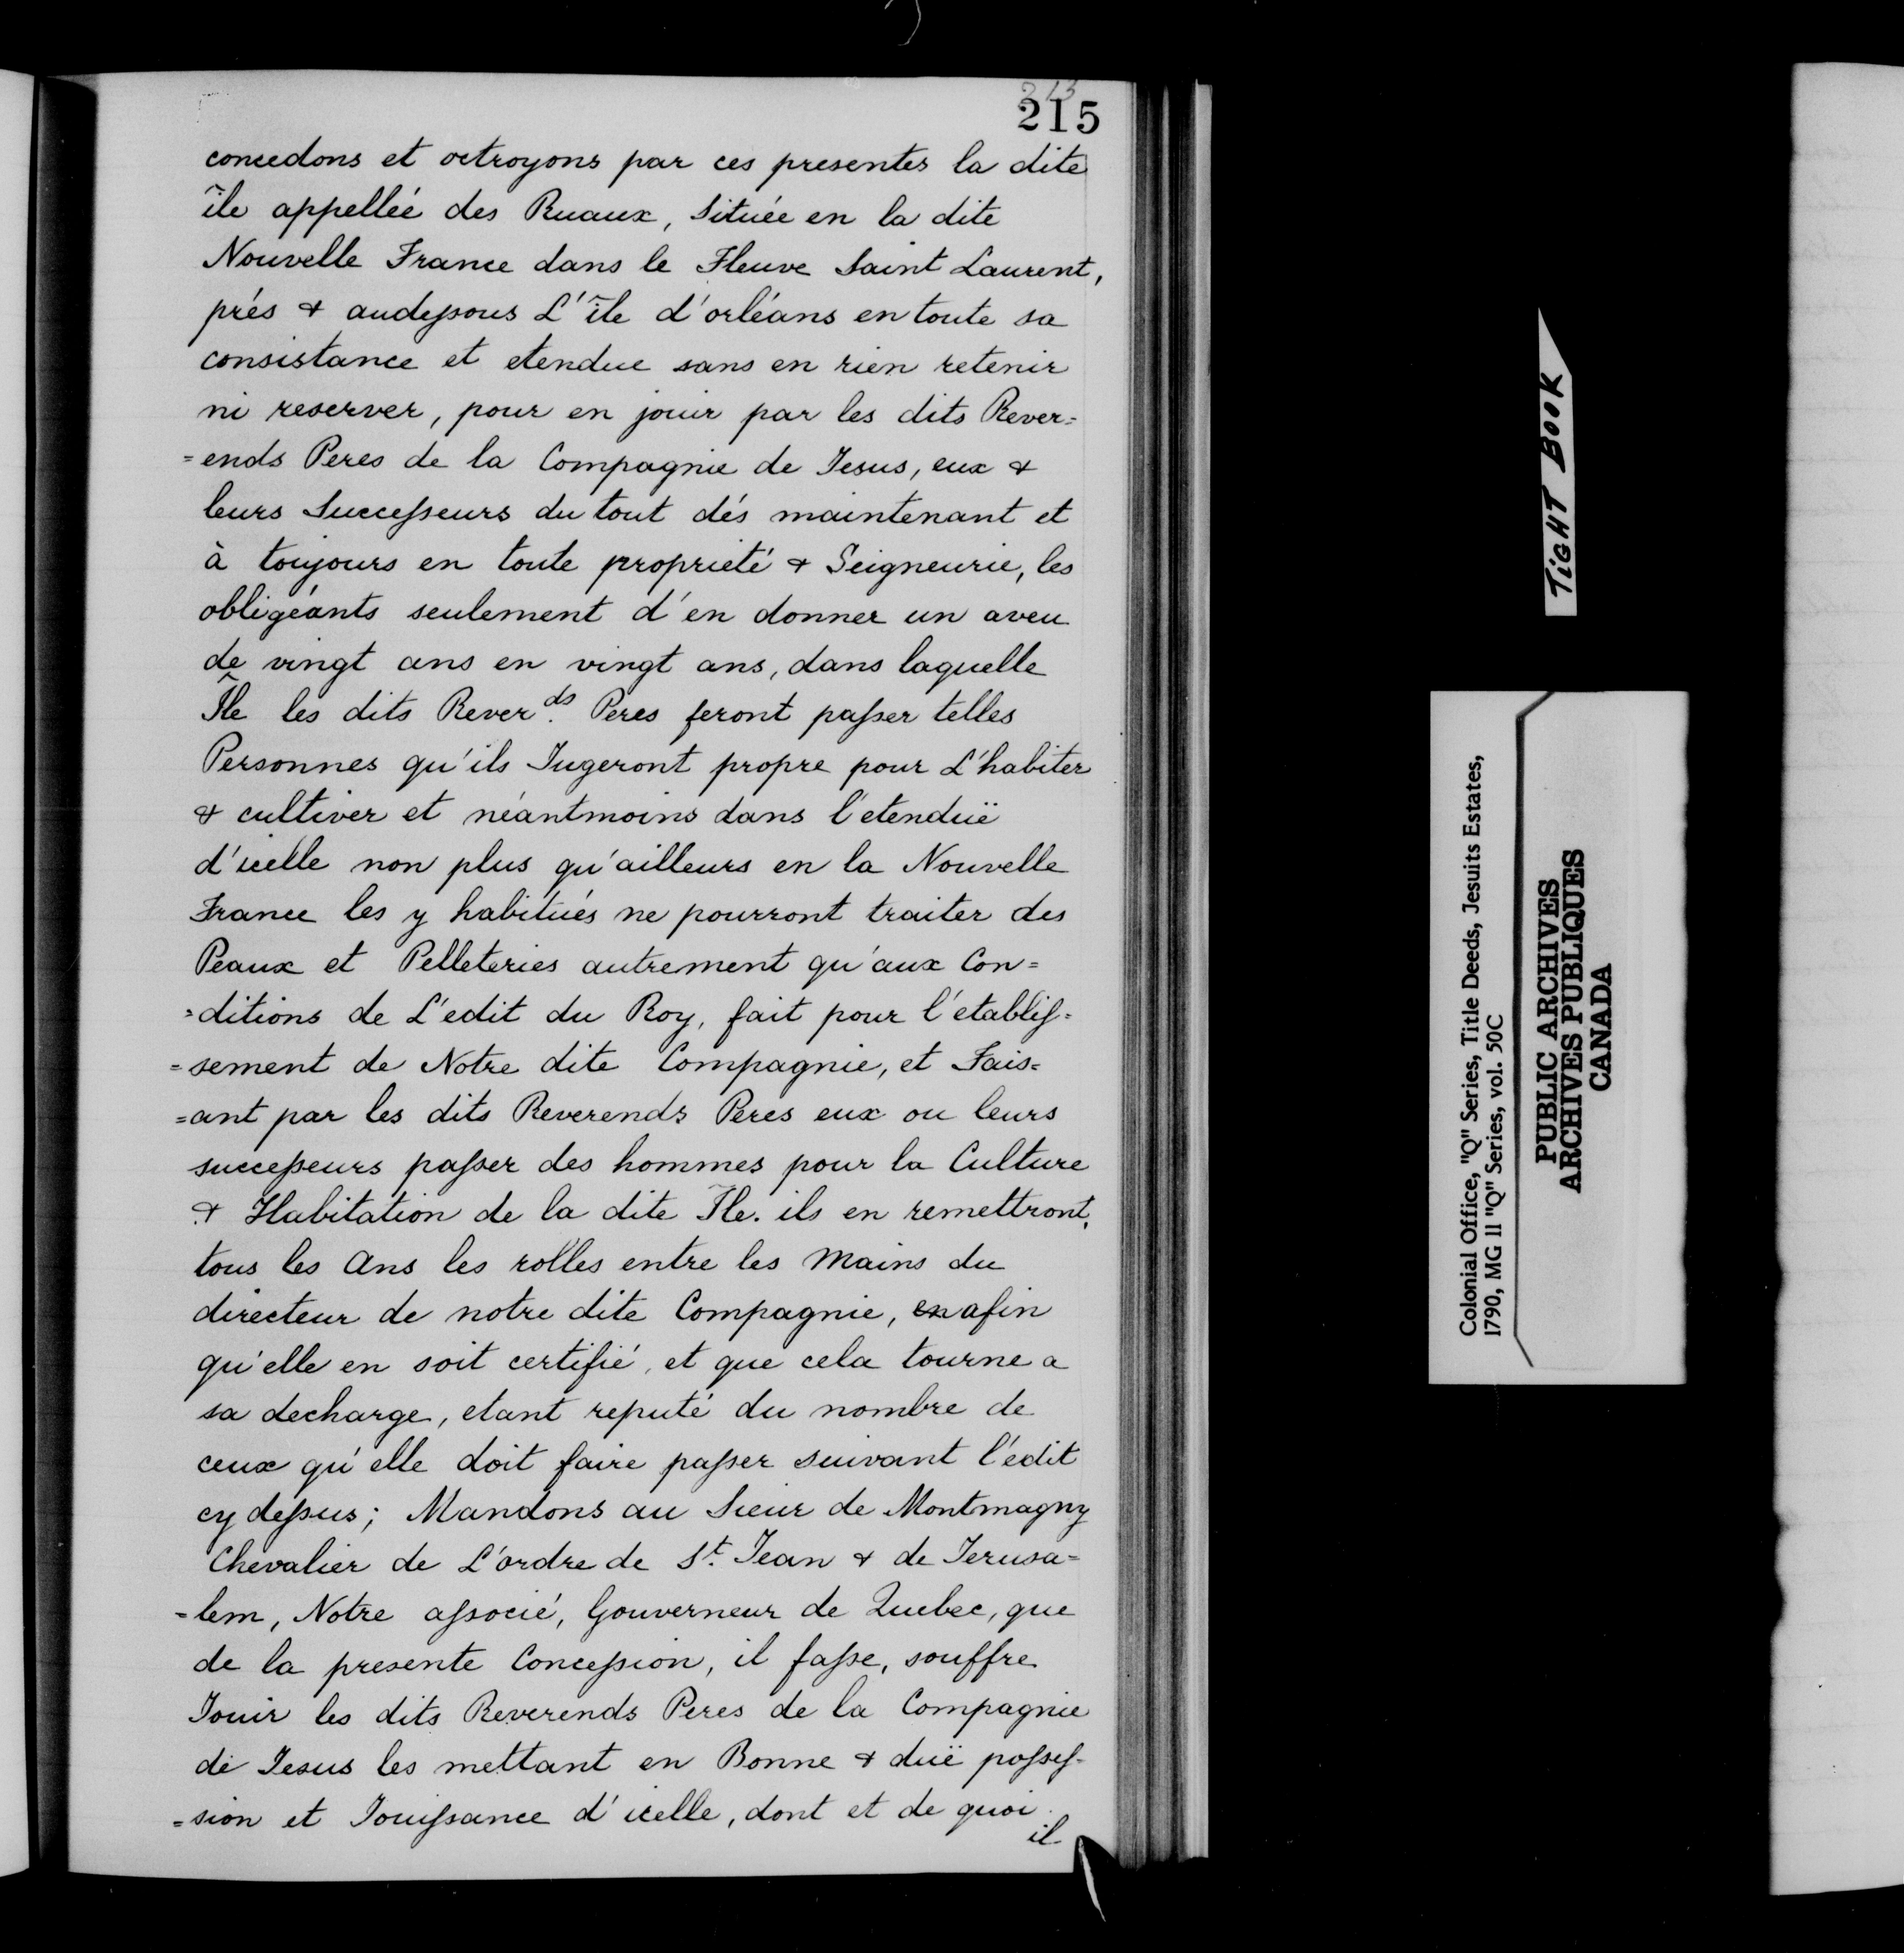 213
215
concedons et octroyons par ces presentes la dite
île appelleé des Ruaux, Située en la dite
Nouvelle France dans le Fleuve Saint Laurent,
prés & audeſsous L'île d'orléans en toute sa
consistance et etendue sans en rien retenir
ni reserver, pour en jouir par les dits Rever=
=ends Peres de la Compagnie de Jesus, eux &
leurs Succeſseurs du tout dés maintenant et
à toujours en toute proprieté & Seigneurie, les
obligéants seulement d'en donner un aveu
de vingt ans en vingt ans, dans laquelle
Île les dits Reverds. Peres feront paſser telles
Personnes qu'ils Jugeront propre pour L'habiter
& cultiver et néantmoins dans l'etenduë
d'icelle non plus qu'ailleurs en la Nouvelle
France les y habitués ne pourront traiter des
Peaux et Pelleteries autrement qu'aux Con=
=ditions de L'edit du Roy, fait pour l'etabliſ=
=sement de Notre dite Compagnie, et Fais=
=ant par les dits Reverends Peres eux ou leurs
succeſseurs paſser des hommes pour la Culture
& Habitation de la dite Île. ils en remettront,
tous les Ans les rolles entre les Mains du
directeur de notre dite Compagnie, en afin
qu'elle en soit certifié, et que cela tourne a
sa decharge, etant reputé du nombre de
ceux qu'elle doit faire paſser suivant l'édit
cy deſsus; Mandons au Sieur de Montmagny
Chevalier de L'ordre de St. Jean & de Jerusa=
=lem, Notre aſsocié, Gouverneur de Quebec, que
de la presente Conceſsion, il faſse, souffre
Jouir les dits Reverends Peres de la Compagnie
de Jesus les mettant en Bonne & duë poſseſ=
=sion et Jouiſsance d'icelle, dont et de quoi
il
TIGHT BOOK
Colonial Office, "Q" Series, Title Deeds, Jesuits Estates,
1790, MG 11 "Q" Series, vol. 50C
PUBLIC ARCHIVES
ARCHIVES PUBLIQUES
CANADA